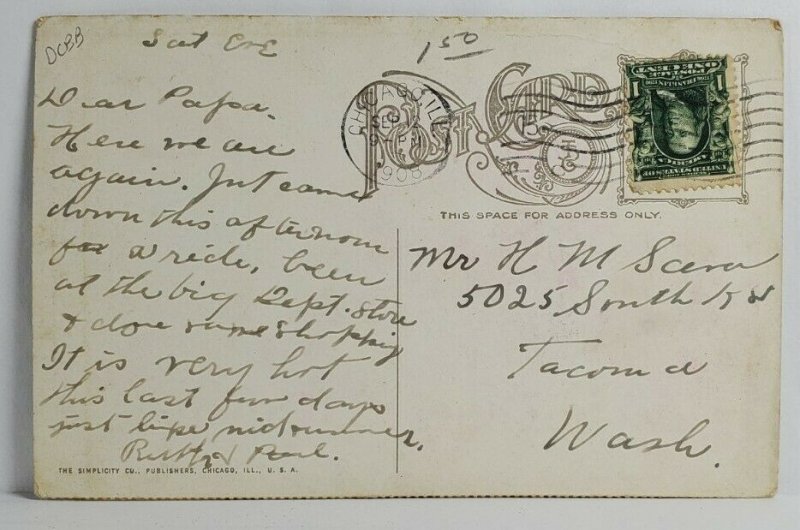 DCBB
Sat Eve
1 50
Dear Papa.
Here we are
again. Just came
down this afternoon
for a ride, been
at the big Dept. store
& done some shopping
It is very hot
this last few days
just like midsummer.
Ruth & Pearl.
THE SIMPLICITY CO., PUBLISHERS, CHICAGO, ILL., U. S. A.
CHICAGO, ILL.
SEP 12
9 PM
1908
POST CARD
THIS SPACE FOR ADDRESS ONLY.
Mr H M
5025 South
Tacoma
Wash.